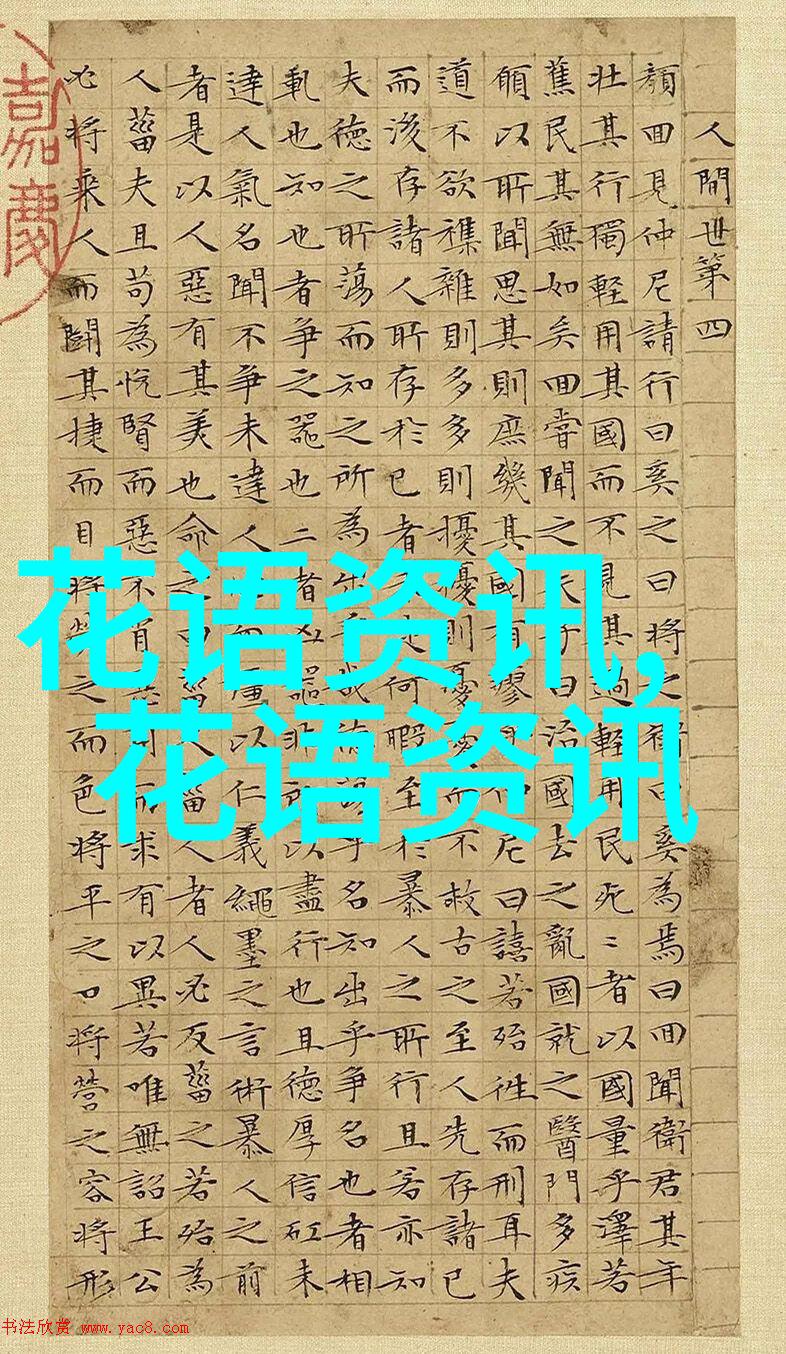 人間世第四
顏回見仲尼請行曰奚之曰將之衛曰奚為焉曰回聞衛君其年
壯其行獨輕用其國而不見其過輕用民死〻者以國量乎澤若
蕉民其無如矣回嘗聞之夫子曰治國去之亂國就之醫門多疾
願以所聞思其則庶幾其國有瘳乎仲尼曰譆若殆往而刑耳夫
道不欲襍雜則多多則擾擾則憂憂而不救古之至人先存諸已
而後存諸人所存於已者未定何暇至於暴人之所行且若亦知
夫德之所蕩而知之所為出乎哉德蕩乎名知出乎爭名也者相
軋也知也者爭之器也二者凶器非所以盡行也且德厚信矼未
達人氣名聞不爭未達人心而彊以仁義繩墨之言術暴人之前
者是以人惡有其美也命之曰菑人菑人者人必反菑之若殆為
人菑夫且苟為悅賢而惡不肖惡用而求有以異若唯無詔王公
必將乘人而鬪其捷而目將熒之而色將平之口將營之容將形
嘉慶
花语资讯,
花语资讯
书法欣赏 www.yac8.com